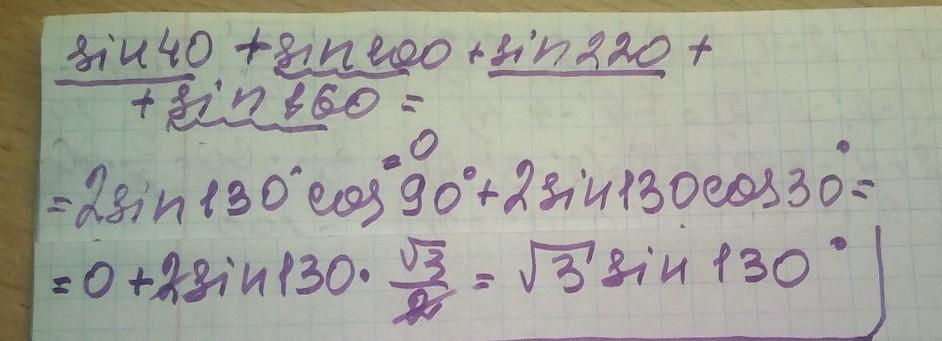 sin40 + sin100 + sin220 +
+ sin160 =
= 2sin130° cos 90° + 2sin130cos30° =
= 0
= 0 + 2sin130 · √3/2 = √3 sin 130°